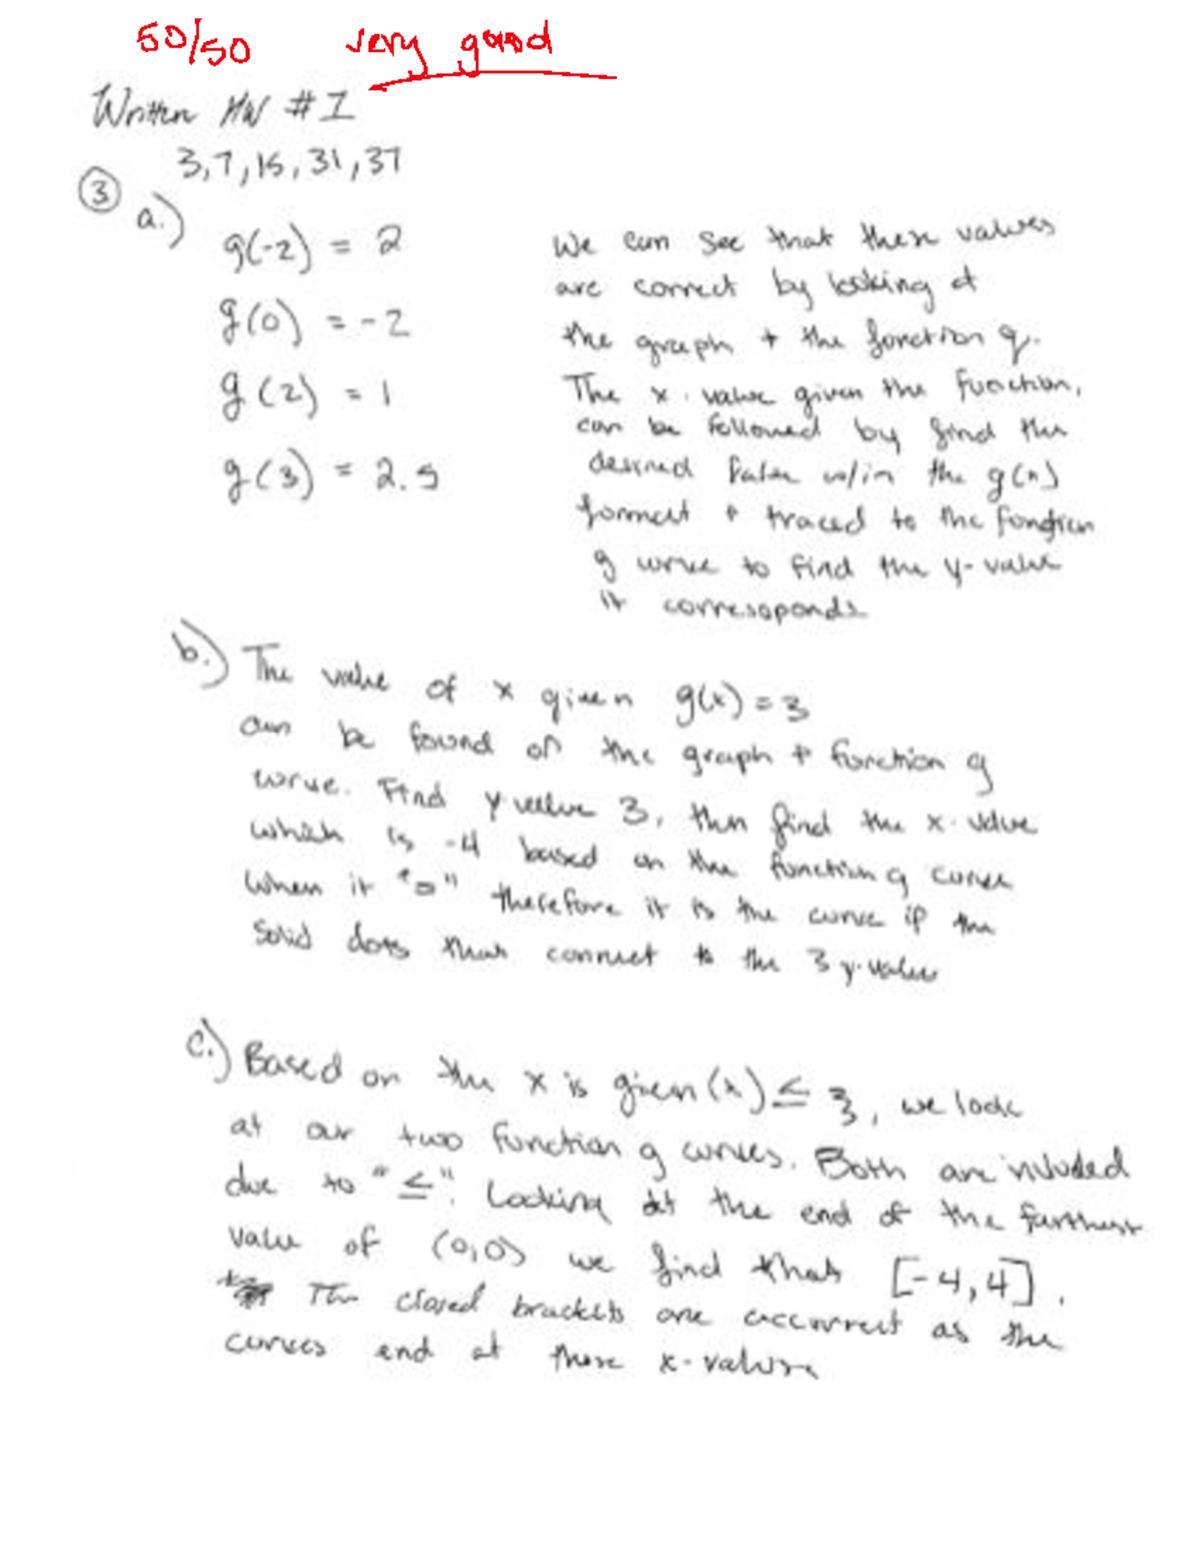 50/50 very good
Written HW #1
3,7,15,31,37
③ a.)
g(-2) = 2
g(0) = -2
g(2) = 1
g(3) = 2.5
We can see that these values
are correct by looking at
the graph + the function g.
The x-value given the function,
can be followed by find the
desired w/in the g(n)
format + traced to the function
g to find the y-value
it corresoponds
b.) The value of x given g(x) = 3
can be found on the graph + function g
curve. Find y value 3, then find the x-value
which is -4 based on the function g curve
when it "=" therefore it is the curve if the
solid dots that connect to the 3 y-value
c.) Based on the x is given (x) ≤ 3, we look
at our two function g curves. Both are included
due to "≤". Looking at the end of the furthest
value of (0,0) we find that [-4,4].
The closed brackets are as the
curves end at these x-values